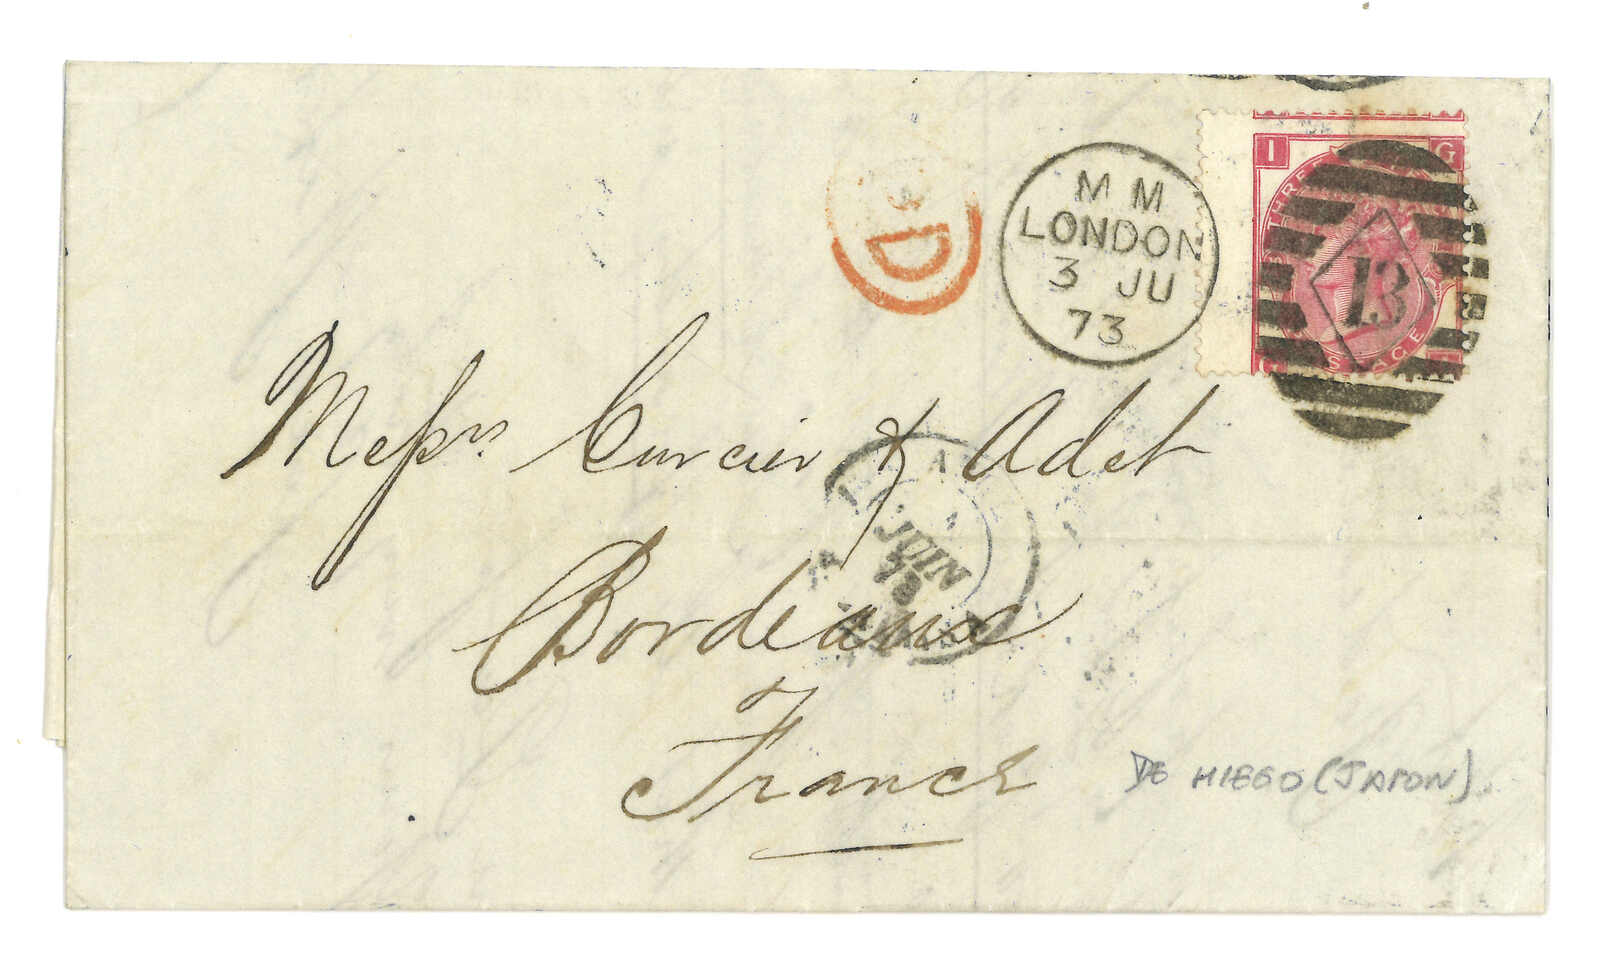 I G
THREE
POSTAGE
13
M M
LONDON
3 JU
73
D
Messrs Curcier & Adet
JUIN
73
Bordeaux
France
DE HIEGO (JAPON)